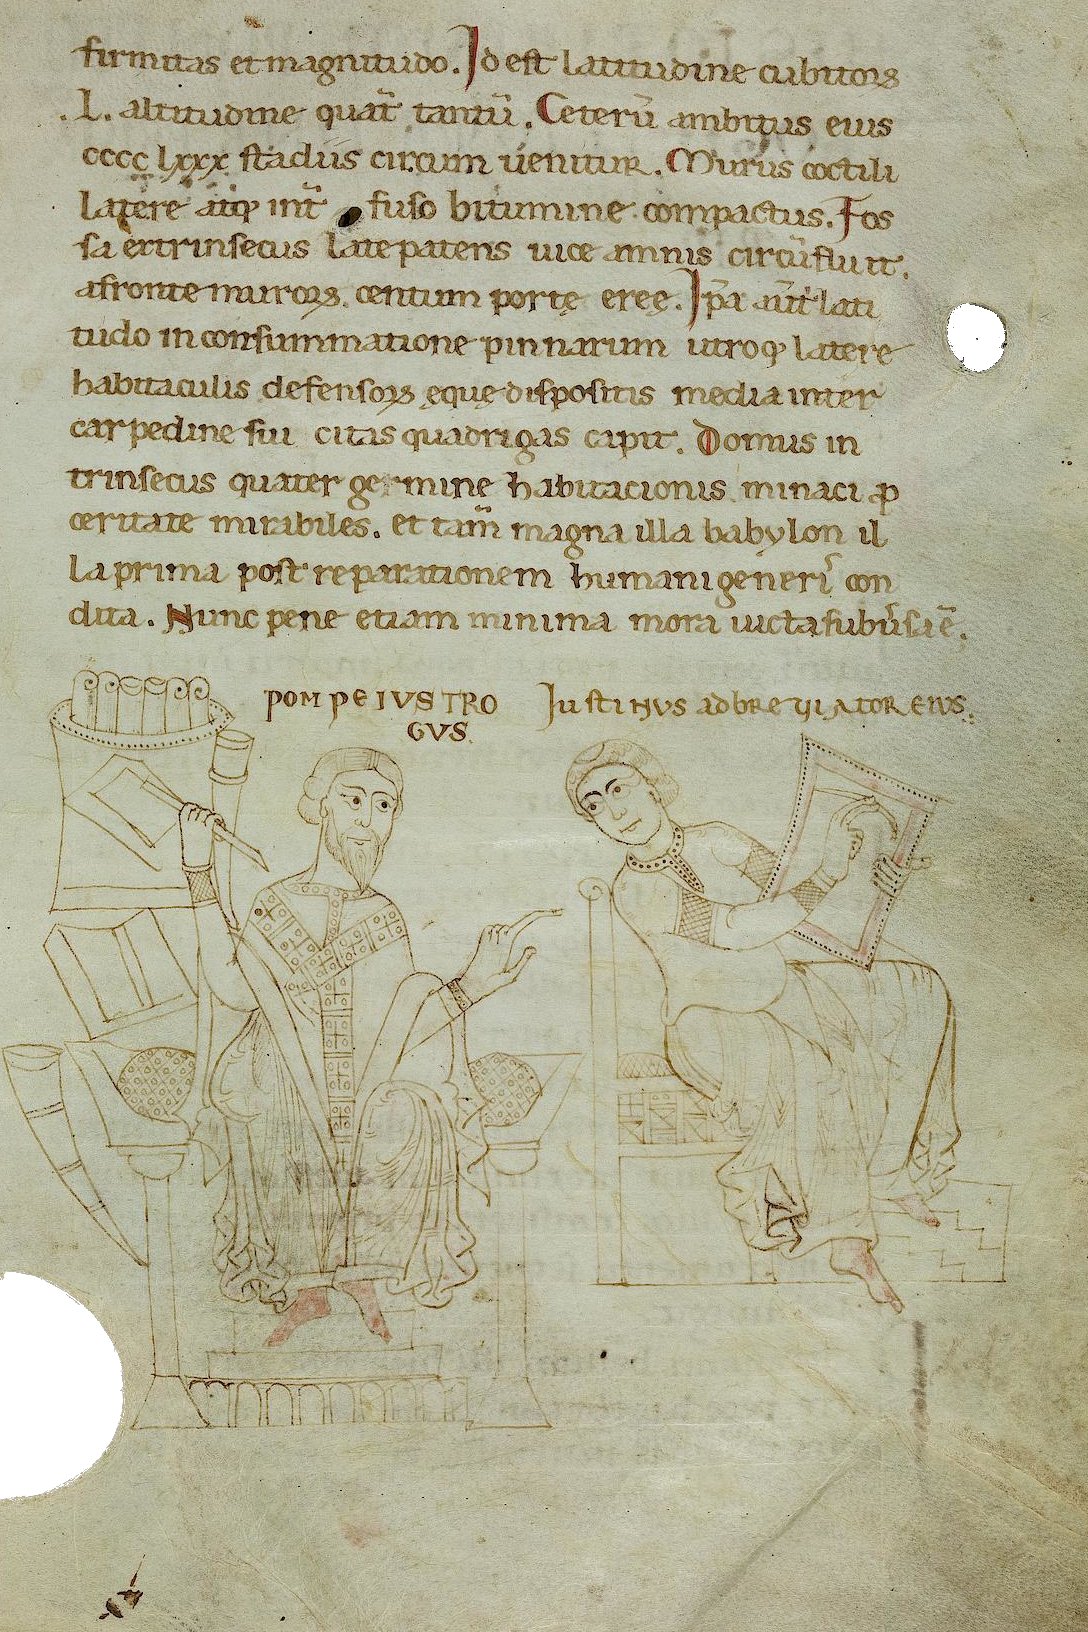 firmitas et magnitudo. Id est latitudine cubitoꝝ
.L. altitudine quat̄ tantū. Ceterū ambitus eius
cccc lxxx stadiis circum uenitur. Murus coctili
latere atqꝫ int̄ fuso bitumine compactus. Fos
sa extrinsecus late patens uice amnis circūfluit.
afronte muroꝝ. centum portę ereę. Ip̄a aūt lati
tudo in consummatione pinnarum utroqꝫ latere
habitaculis defensoꝝ ęque dispositis media inter
carpedine sui citas quadrigas capit. Domus in
trinsecus quater gemine habitacionis minaci ꝓ
ceritate mirabiles. et tam̄ magna illa babylon il
la prima post reparationem humani generis con
dita. Nunc pene etiam minima mora uicta subūsa ē.
POMPEIVS TRO
GVS.
Iustinus adbreuiator eius.